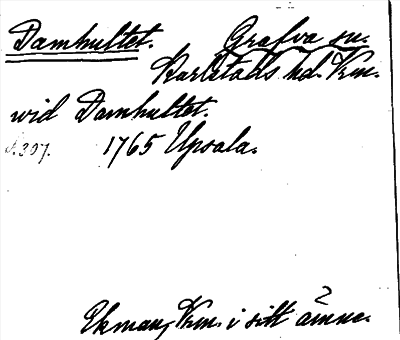 Damhultet. Grafva sn.
Karlstads hd. Vrm.
wid Damhultet.
s. 307. 1765 Upsala.
Ekman, Vrm. i sitt ämne.